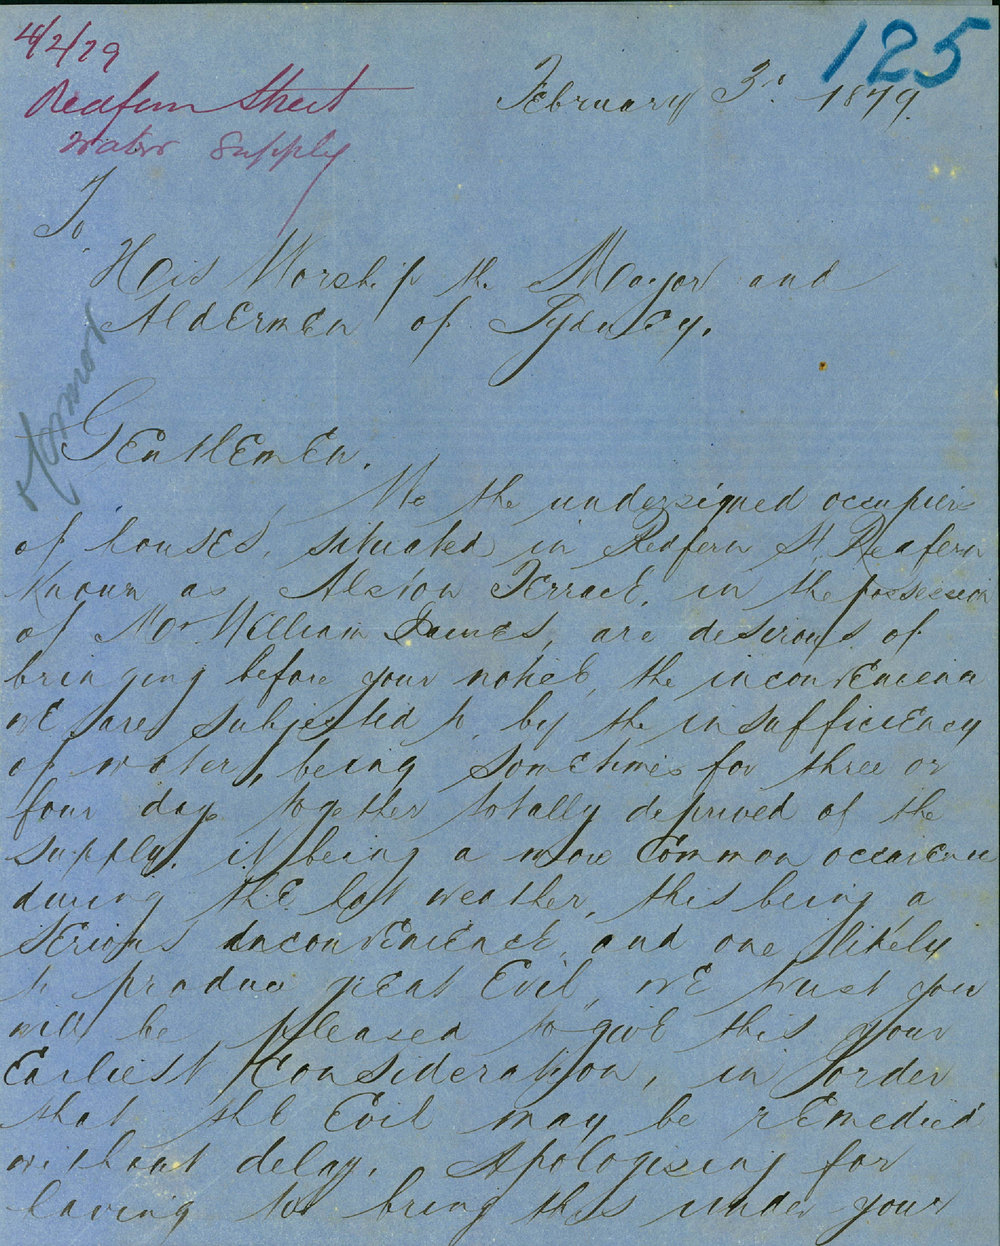 4/2/79
125
Redfern Street
Water Supply
February 3d. 1879.
To
His Worship the Mayor and
Aldermen of Sydney.
Gentlemen.
We the undersigned occupiers
of houses, situated in Redfern St, Redfern
Known as Albion Terrace, in the possession
of Mr William James, are desirous of
bringing before your notice, the inconvenience
we are subjected to by the insufficiency
of water, being sometimes for three or
four days together totally deprived of the
supply. it being a more common occurence
during the last weather, this being a
serious inconvenience, and one likely
to produce great Evil, we trust you
will be pleased to give this your
Earliest Consideration, in order
that the Evil may be remedied
without delay. Apologising for
having to bring this under your